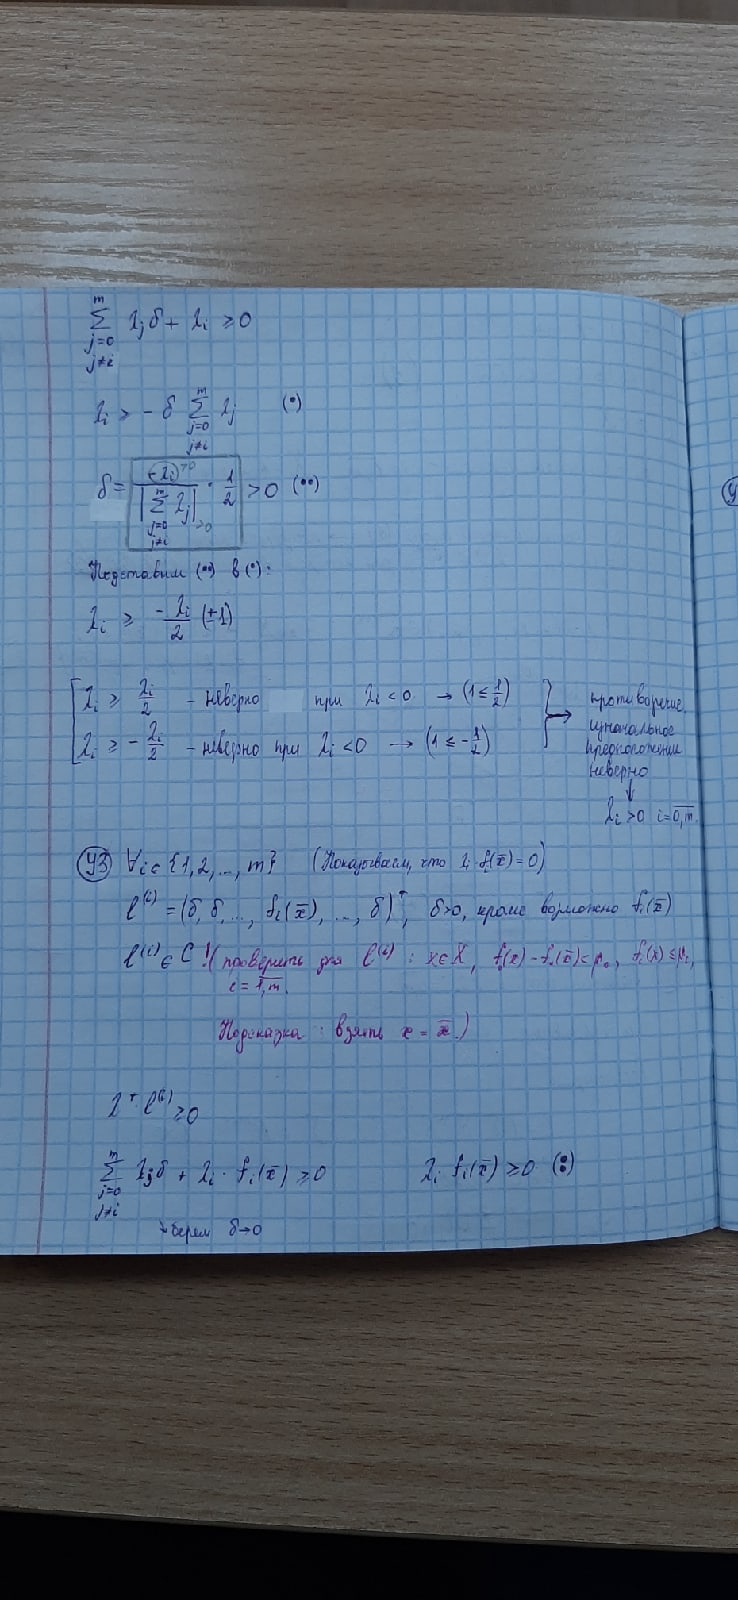 m
∑ λⱼδ + λᵢ ≥ 0
j=0
j≠i
λᵢ ≥ - δ ∑ λⱼ (•)
m
j=0
j≠i
δ = (-λᵢ)>0 / |∑ λⱼ|>0 · 1/2 > 0 (••)
m
j=0
j≠i
Подставим (••) в (•):
λᵢ ≥ -λᵢ/2 (±1)
[ λᵢ ≥ λᵢ/2 - неверно при λᵢ < 0 → (1 ≤ 1/2)
λᵢ ≥ - λᵢ/2 - неверно при λᵢ < 0 → (1 ≤ -1/2) } →
противоречие,
изначальное
предположение
неверно
↓
λᵢ > 0 i = 0,m.
У3 ∀i ∈ {1,2,..., m} (Показываем, что λᵢ fᵢ(x̄) = 0)
ℓ⁽ⁱ⁾ = (δ, δ, ..., fᵢ(x̄), ..., δ)ᵀ, δ>0, кроме возможно fᵢ(x̄)
ℓ⁽ⁱ⁾ ∈ C ! (проверить для ℓ⁽ⁱ⁾ : x ∈ X, f₀(x) - f₀(x̄) < μ₀, fᵢ(x) ≤ μᵢ,
i = 1,m.
Подсказка : взять x = x̄.)
λᵀ ℓ⁽ⁱ⁾ ≥ 0
m
∑ λⱼδ + λᵢ · fᵢ(x̄) ≥ 0 λᵢ fᵢ(x̄) ≥ 0 (:)
j=0
j≠i
↘ берем δ→0
У